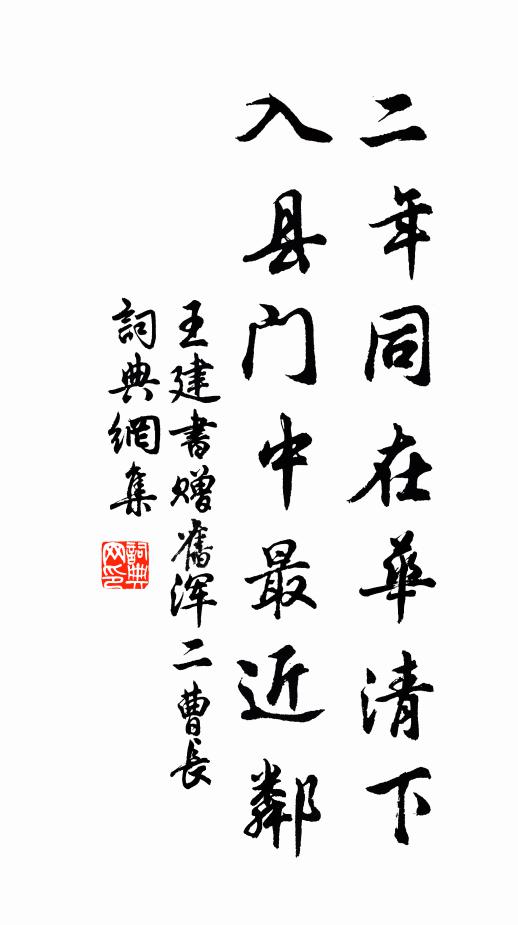 二年同在華清下
入县门中最近鄰
王建书赠舊浑二曹長
詞典網集
詞典網印